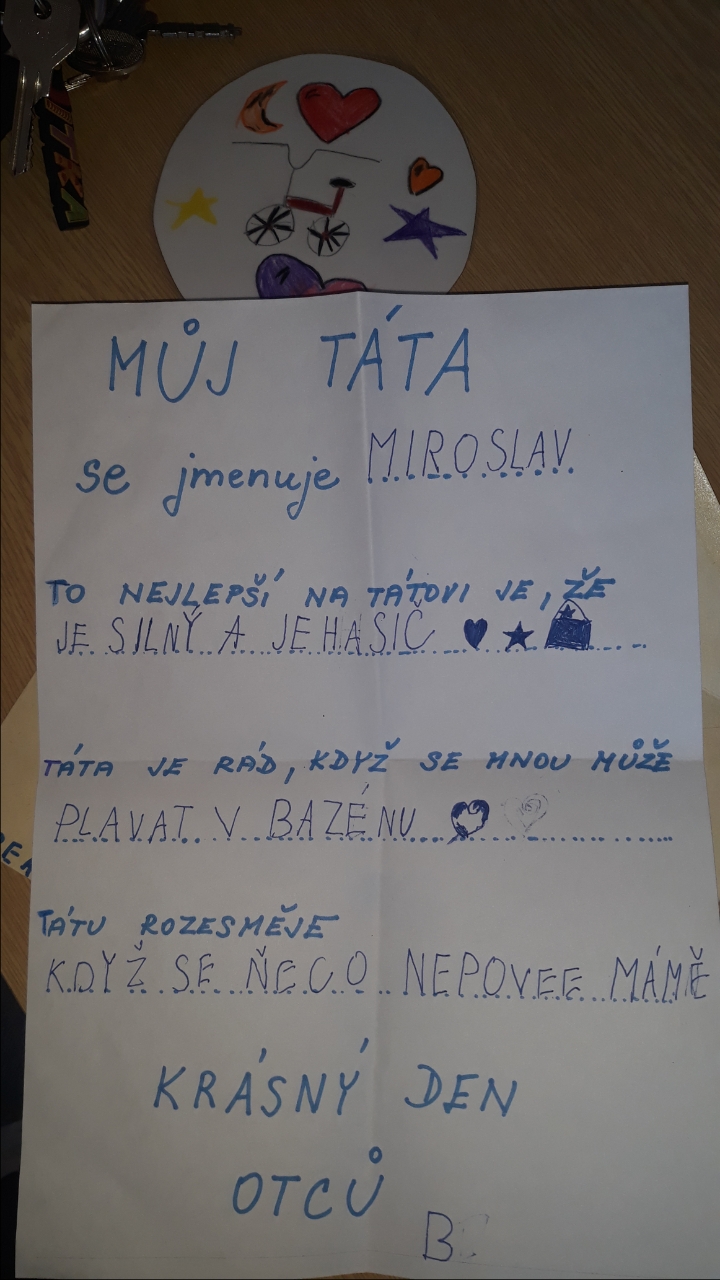 MŮJ TÁTA
se jmenuje MIROSLAV
TO NEJLEPŠÍ NA TÁTOVI JE, ŽE
JE SILNÝ A JE HASIČ
TÁTA JE RÁD, KDYŽ SE MNOU MŮŽE
PLAVAT V BAZÉNU
TÁTU ROZESMĚJE
KDYŽ SE ŇECO NEPOVEE MÁMĚ
KRÁSNÝ DEN
OTCŮ
B